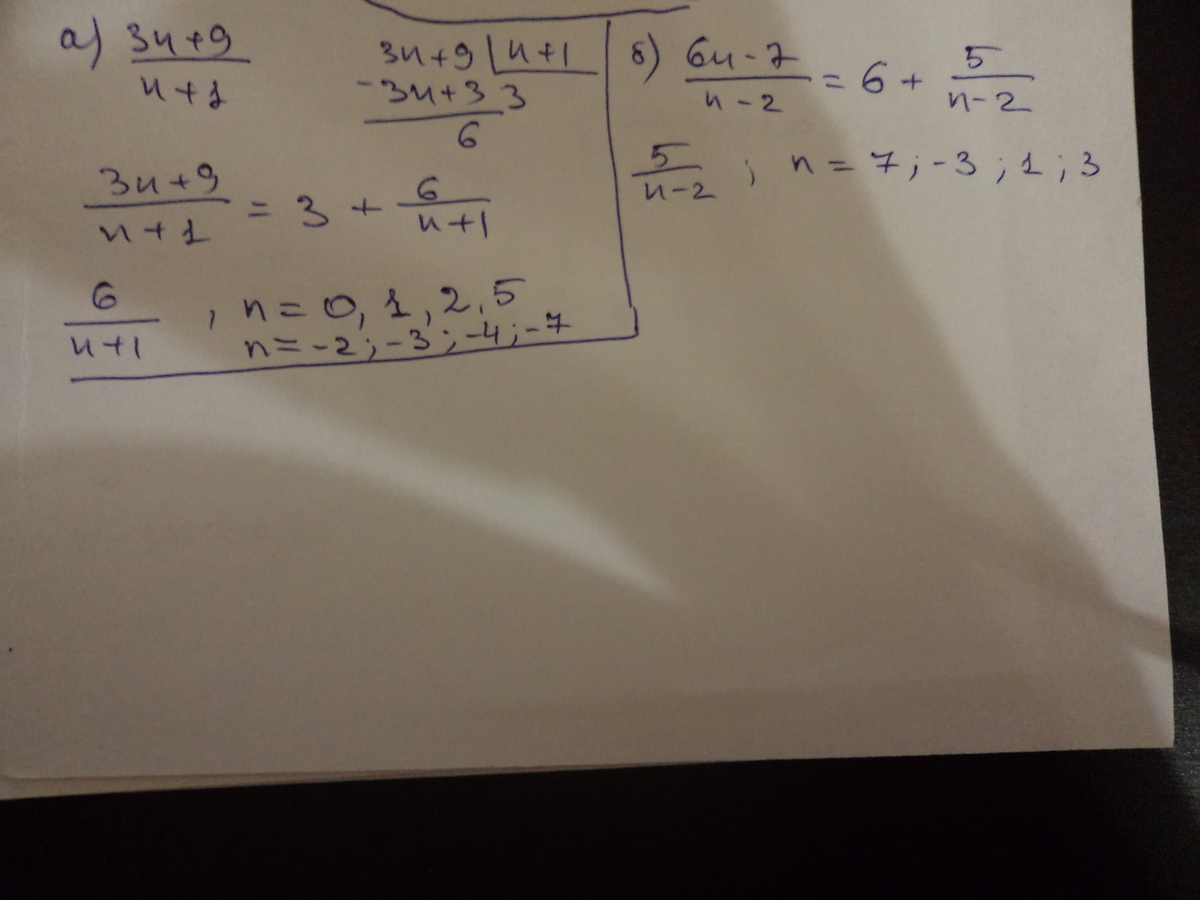 а) 3n+9 / n+1
3n+9 | n+1
-3n+3 3
6
3n+9 / n+1 = 3 + 6 / n+1
6 / n+1 , n = 0, 1, 2, 5
n = -2; -3; -4; -7
б) 6n-7 / n-2 = 6 + 5 / n-2
5 / n-2 ; n = 7; -3; 1; 3